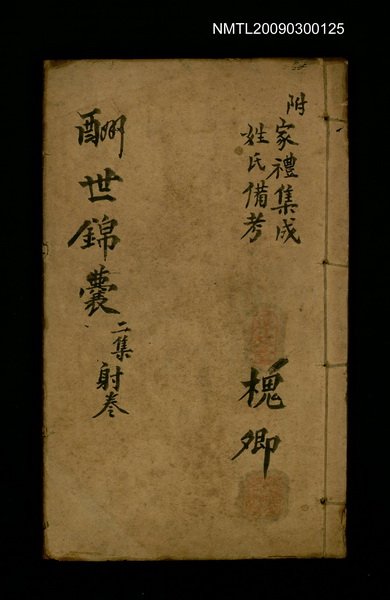 NMTL20090300125
附
家禮集成
姓氏備考
槐卿
酬世錦囊
二集
射卷